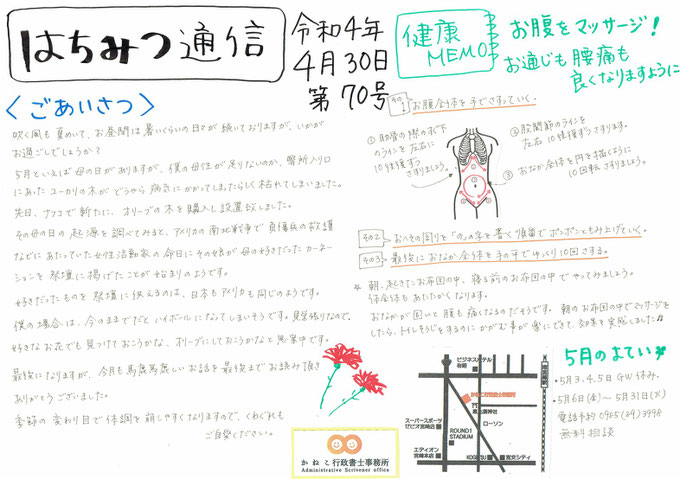 はちみつ通信
令和4年
4月30日
第70号
健康
MEMO
お腹をマッサージ!
お通じも腰痛も
良くなりますように
<ごあいさつ>
吹く風も夏めいて、お昼間は暑いくらいの日々が続いておりますが、いかが
お過ごしでしょうか?
5月といえば母の日がありますが、僕の母性が足りないのか、事務所入り口
にあったユーカリの木がどうやら病気にかかってしまったらしく枯れてしまいました。
先日、ナフコで新たに、オリーブの木を購入し設置致しました。
その母の日の起源を調べてみると、アメリカの南北戦争で負傷兵の救護
などにあたっていた女性活動家の命日にその娘が母の好きだったカーネー
ションを祭壇に捧げたことが始まりのようです。
好きだったものを祭壇に供えるのは、日本もアメリカも同じのようです。
僕の場合は、今のままでだとハイボールになってしまいそうです。見栄張りなので、
好きなお花でも見つけておこうかなと、オリーブにしておこうかなと思案中です。
最後になりますが、今月も馬鹿馬鹿しいお話を最後までお読み頂き
ありがとうございました。
季節の変わり目で体調を崩しやすくなりますので、くれぐれも
ご自愛ください。
その1
お腹全体を手でさすっていく。
① 肋骨の際の下
のラインを左右に
10往復ずつ
さすりましょう。
② 股関節のラインを
左右10往復ずつさすります。
③ おなか全体を円を描くように
10回転さすりましょう。
その2
おへその周りを「の」の字を書く順番でポンポンともみ上げていく。
その3
最後におなか全体を手の平でゆっくり10回さする。
☆ 朝、起きたお布団の中、寝る前のお布団の中でやってみましょう。
体全体もあたたかくなります。
おなかが固いと腰も痛くなるのだそうです。朝のお布団の中でマッサージを
したら、トイレそうじをするのにかがむ事が楽にできて、効果を実感しました♪
かねこ行政書士事務所
Administrative Scrivener office
ビジネスホテル
有明
かねこ行政書士事務所
スーパースポーツ
ゼビオ宮崎店
ROUND1
STADIUM
ローソン
エディオン
宮崎本店
宮交シティ
5月のよてい
・5月3.4.5日 GW休み.
・5月6日(金)〜5月31日(火)
電話予約 0985(89)3998
無料相談